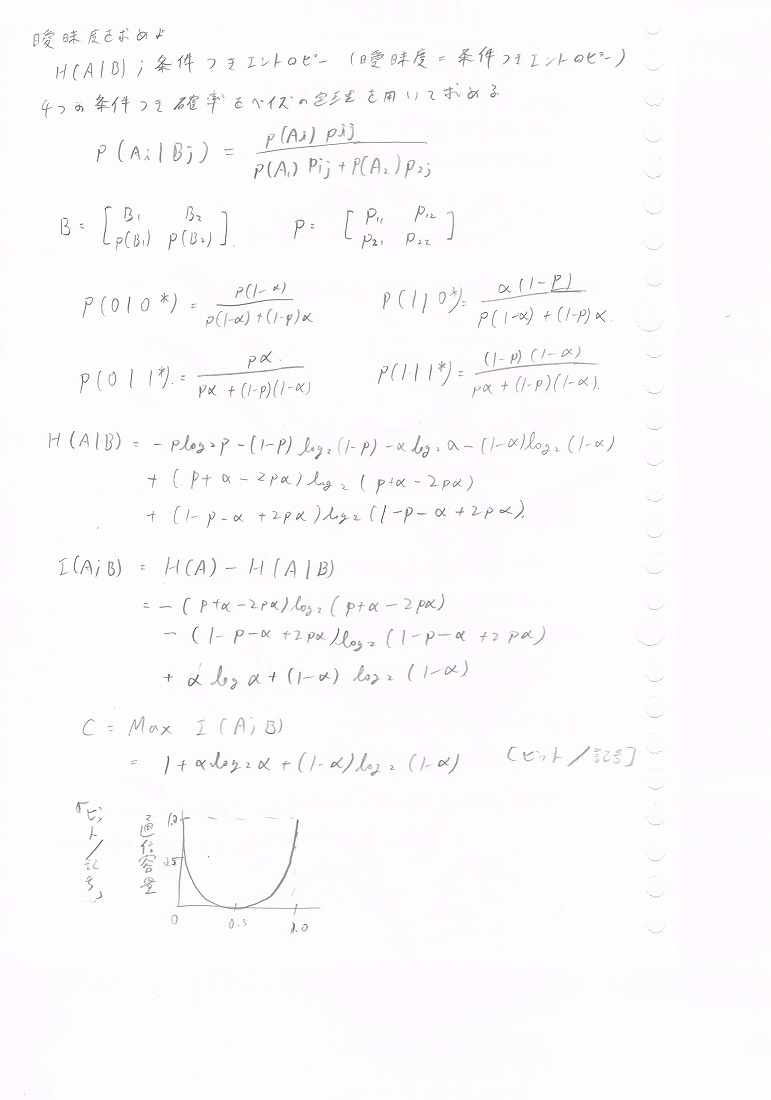 曖昧度を求めよ
H(A|B) ; 条件つきエントロピー (曖昧度 = 条件つきエントロピー)
4つの条件つき確率をベイズの定理を用いて求める
P(Ai|Bj) = p(Ai) pij / p(A₁) pij + p(A₂) p₂j
B = [B₁ B₂ / p(B₁) p(B₂)] P = [P₁₁ P₁₂ / P₂₁ P₂₂]
P(0|0*) = p(1-α) / p(1-α)+(1-p)α P(1|0*) = α(1-p) / p(1-α)+(1-p)α
P(0|1*) = pα / pα+(1-p)(1-α) P(1|1*) = (1-p)(1-α) / pα+(1-p)(1-α)
H(A|B) = -p log₂p -(1-p) log₂(1-p) -α log₂ α -(1-α) log₂(1-α)
+ (p+α-2pα) log₂(p+α-2pα)
+ (1-p-α+2pα) log₂(1-p-α+2pα).
I(A;B) = H(A) - H(A|B)
= -(p+α-2pα) log₂(p+α-2pα)
-(1-p-α+2pα) log₂(1-p-α+2pα)
+ α log α + (1-α) log₂(1-α)
C = Max I(A;B)
= 1+α log₂ α + (1-α) log₂(1-α) [ビット/記号]
「ビット/記号」
通信容量
1.0
0.5
0 0.5 1.0